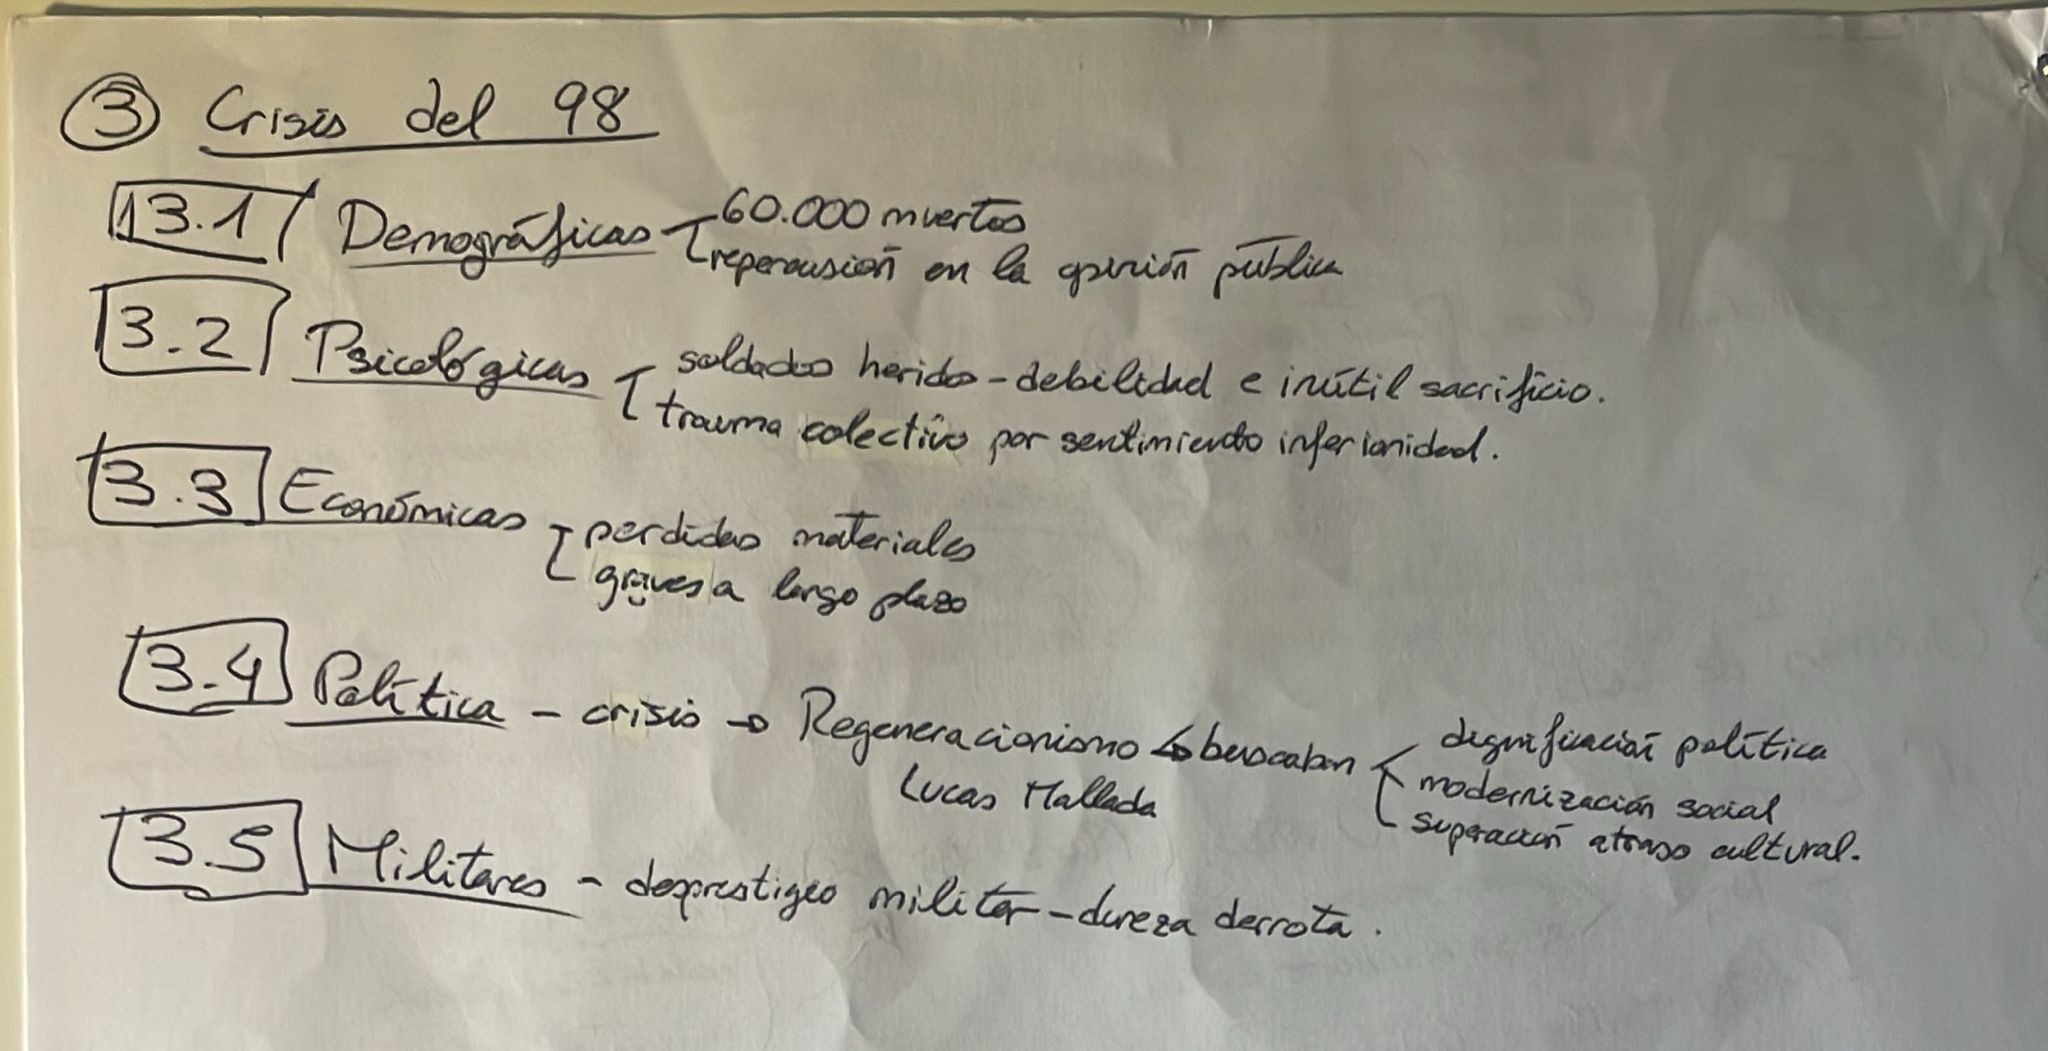 3 Crisis del 98
13.1 Demográficas 60.000 muertos
repercusión en la opinión pública
3.2 Psicológicas soldados heridos - debilidad e inútil sacrificio.
trauma colectivo por sentimiento inferioridad.
3.3 Económicas perdidas materiales
graves a largo plazo
3.4 Política - crisis → Regeneracionismo ↳ buscaban dignificación política
Lucas Mallada modernización social
superación atraso cultural.
3.5 Militares - desprestigeo militar - dureza derrota.